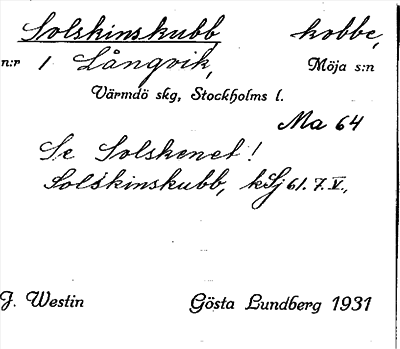 Solskinskubb, kobbe,
n:r 1 Långvik, Möja s:n
Värmdö skg, Stockholms l.
Ma 64
Se Solskenet!
Solskinskubb, kSj 61.7.V.,
J. Westin Gösta Lundberg 1931